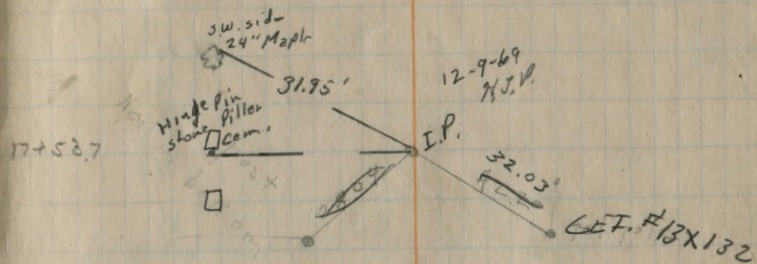 S.W. side
24" Maple
31.95'
12-9-69
Hinge Pin
Stone Piller
Cem.
I.P.
17+53.7
32.03'
GET. #13X132